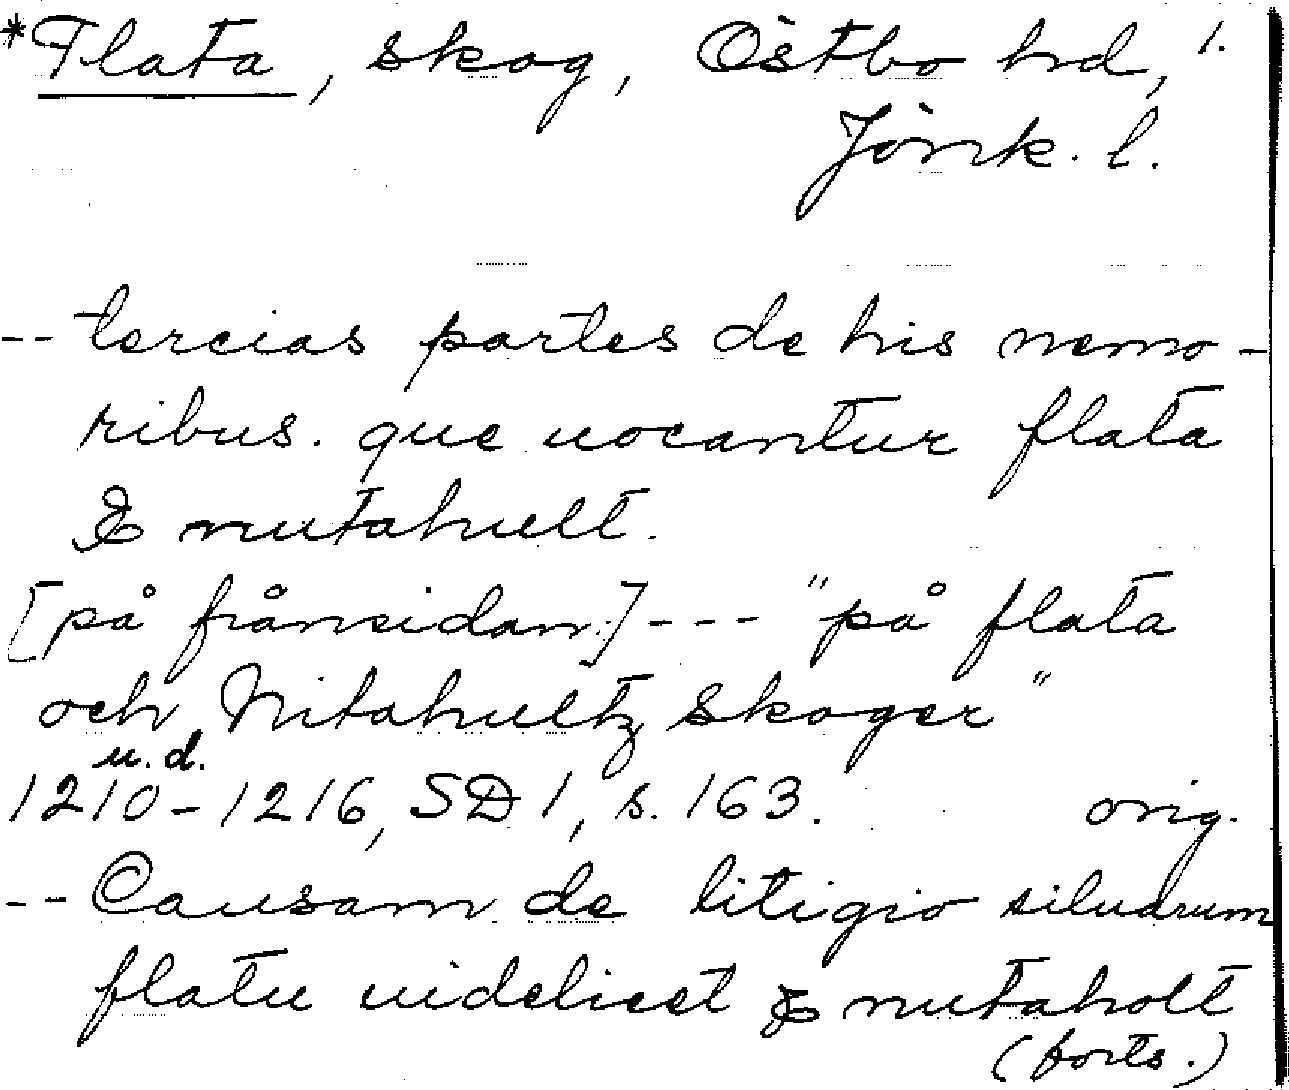 *Flata, skog, Östbo hd, 1.
Jönk. l.
-- tercias partes de his nemo-
ribus. que uocantur flata
& nutahult.
[på frånsidan] --- "på flata
och Nitahultz skoger"
u.d.
1210-1216, SD 1, s. 163. orig.
-- Causam de litigio siluarum
flatu uidelicet & nutaholt
(forts.)